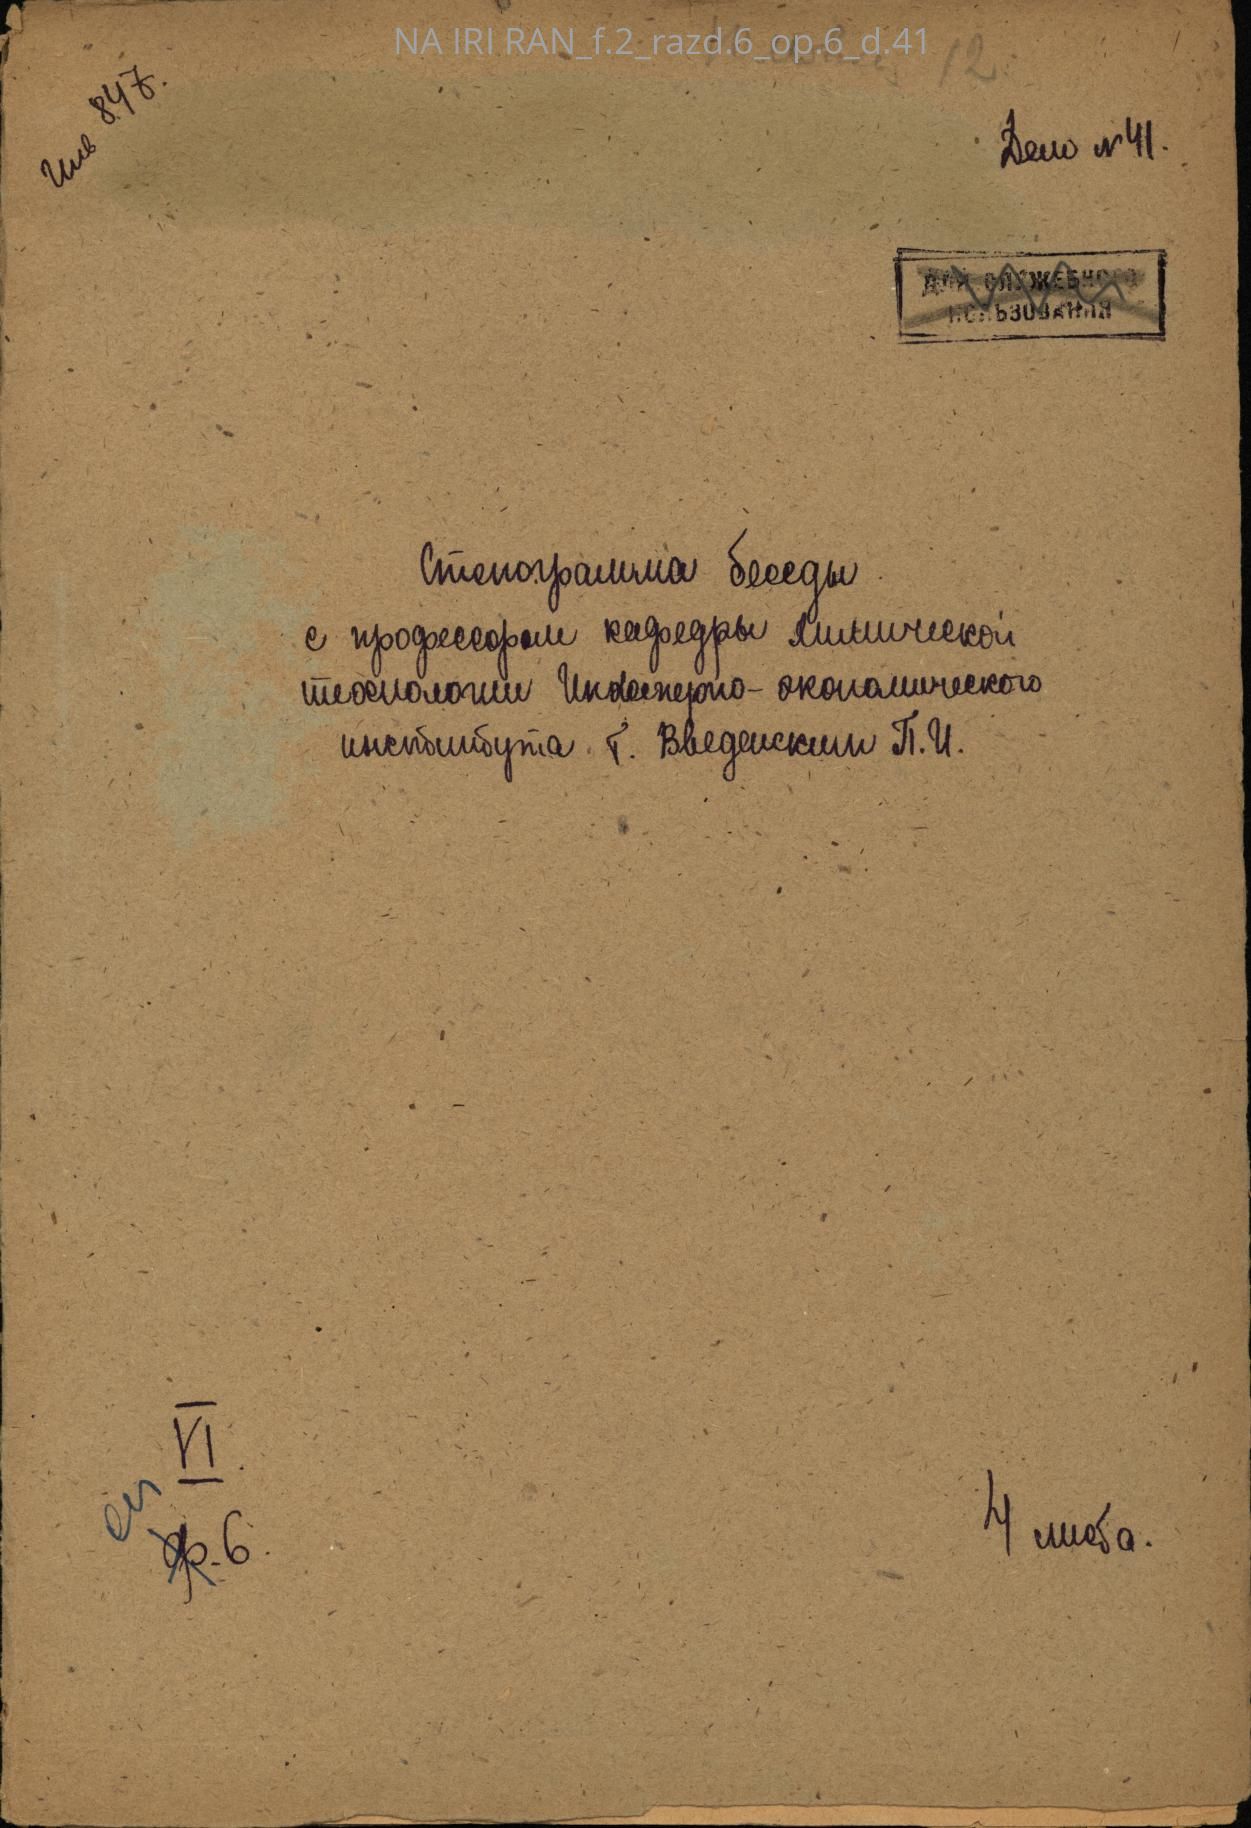 NA IRI RAN_f.2_razd.6_op.6_d.41
12
Инв 847.
Дело №41.
ДЛЯ СЛУЖЕБНОГО
ПОЛЬЗОВАНИЯ
Стенограмма беседы
с профессором кафедры Химической
технологии Инженерно-экономического
института т. Введенским П.И.
VI
оп
ф.6.
4 листа.